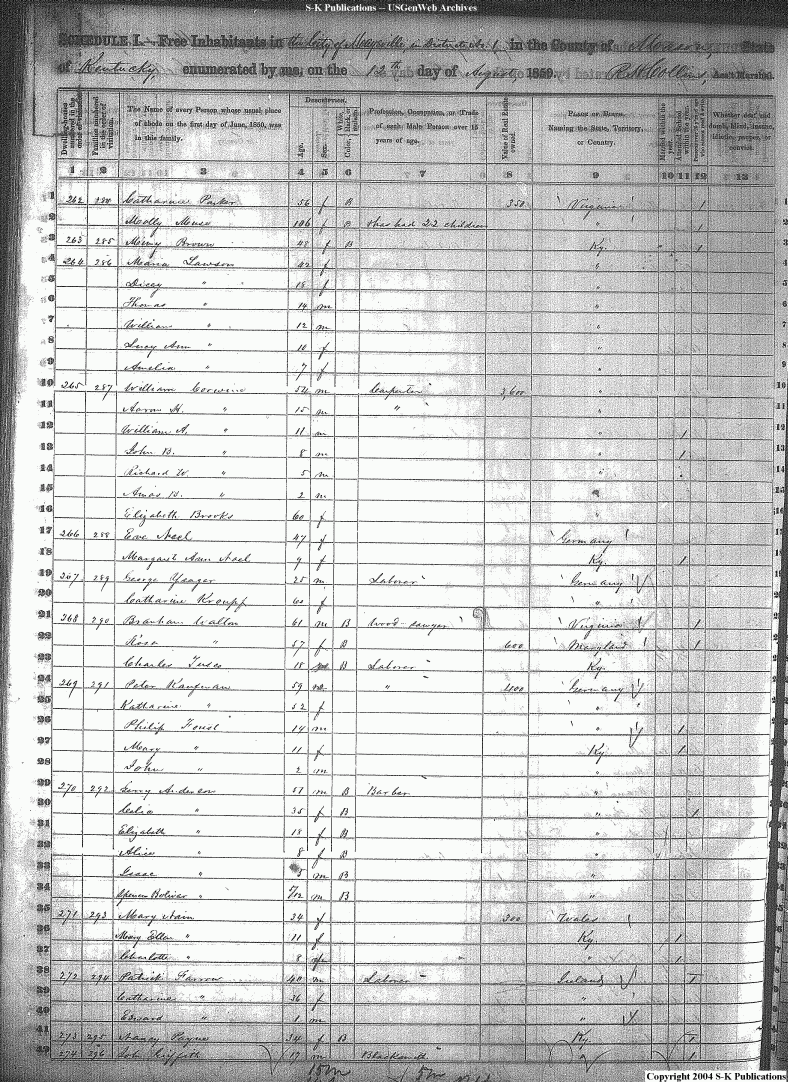 S-K Publications -- USGenWeb Archives
SCHEDULE I.—Free Inhabitants in the City of Maysville, in District No. 1, in the County of Mason, State
of Kentucky enumerated by me, on the 12th day of August, 1850. R. H. Collins, Ass't Marshal.
Dwelling-houses numbered in the order of visitation.
Families numbered in the order of visitation.
The Name of every Person whose usual place of abode on the first day of June, 1850, was in this family.
Description.
Age.
Sex.
Profession, Occupation, or Trade of each Male Person over 15 years of age.
Value of Real Estate owned.
Place of Birth. Naming the State, Territory, or Country.
Married within the year.
Whether deaf and dumb, blind, insane, idiotic, pauper, or convict.
1 2 3 4 5 6 7 8 9 10 11 12 13
1 262 284 Catharine Parker 56 f B 350 Virginia 1
2 Molly Muse 106 f B (has had 22 children 〃 1
3 263 285 Brown 48 f B Ky. 1
4 264 286 Maria Lawson 42 f 〃
5 Dicey 〃 18 f 〃
6 Thomas 〃 14 m 〃
7 William 〃 12 m 〃
8 Lucy Ann 〃 10 f 〃
9 Amelia 〃 7 f 〃
10 265 287 William Corwine 54 m Carpenter 3,600 〃
11 Aaron H. 〃 15 m 〃 〃
12 William A. 〃 11 m 〃 1
13 John B. 〃 8 m 〃 1
14 Richard W. 〃 5 m 〃
15 Amos B. 〃 2 m 〃
16 Elizabeth Brooks 60 f 〃
17 266 288 Eve Nael 47 f Germany
18 Margaret Ann Nael 9 f Ky. 1
19 267 289 George Yeager 25 m Laborer Germany
20 Catharine Kroupp 60 f 〃
21 268 290 Wallon 61 m B Wood-sawyer Virginia 1
22 Rosa 〃 57 f B 600 Maryland 1
23 Charles 18 m B Laborer Ky.
24 269 291 Peter Kaufman 59 m 〃 400 Germany
25 Katharine 〃 52 f 〃
26 Philip Foust 14 m 〃 1
27 Mary 〃 11 f Ky. 1
28 John 〃 2 m 〃
29 270 292 Anderson 51 m B Barber 〃
30 Celia 〃 35 f B 〃 1
31 Elizabeth 〃 18 f B 〃
32 Alice 〃 8 f B 〃
33 Isaac 〃 5 m B 〃
34 Spencer Boliver 〃 5/12 m B 〃
35 271 293 Mary Nain 34 f 300 Wales
36 Mary Ellen 〃 11 f Ky. 1
37 Charlotte 〃 8 f 〃 1
38 272 294 Patrick Farrow 40 m Laborer Ireland 1
39 Catharine 〃 36 f 〃
40 Edward 〃 1 m 〃
41 273 295 Nancy Payne 34 f B Ky. 1
42 274 296 John Griffith 17 m Blacksmith 〃 1
15 m
Copyright 2004 S-K Publications